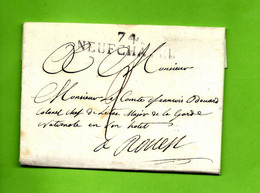 74
NEUFCHATEL
A Monsieur
Monsieur Le Comte François Édouard
Colonel chef de Major de la Garde
Nationale en Son hotel
a Rouen